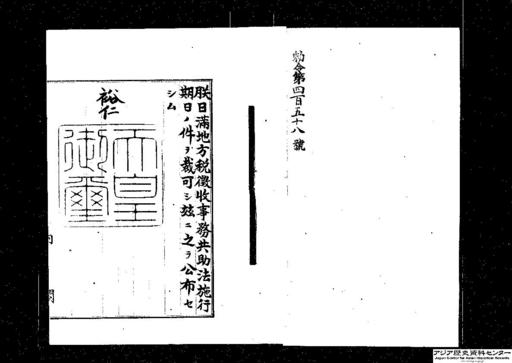 勅令第四百五十八號
朕日滿地方税徴收事務共助法施行
期日ノ件ヲ裁可シ玆ニ之ヲ公布セ
シム
裕仁
天皇
御璽
内閣
アジア歴史資料センター
Japan Center for Asian Historical Records